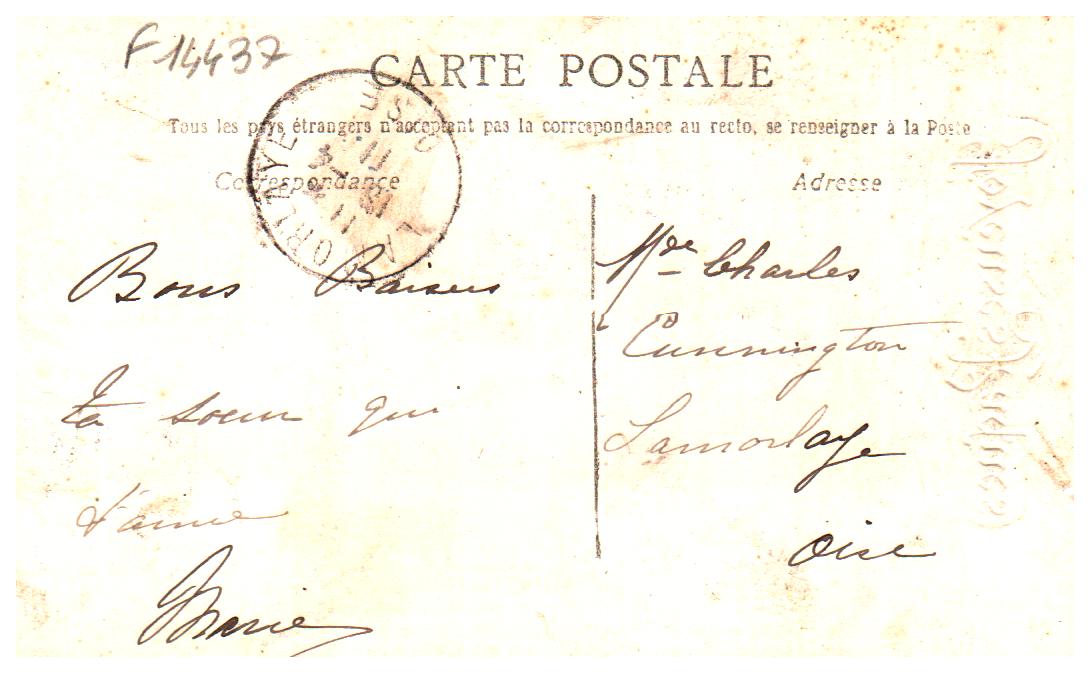 F 14437
CARTE POSTALE
Tous les pays étrangers n'acceptent pas la correspondance au recto, se renseigner à la Poste
Correspondance
Adresse
LAMORLAYE
OISE
Bons Baisers
ta soeur qui
t'aime
Marie
Mde Charles
Cunnington
Lamorlaye
Oise